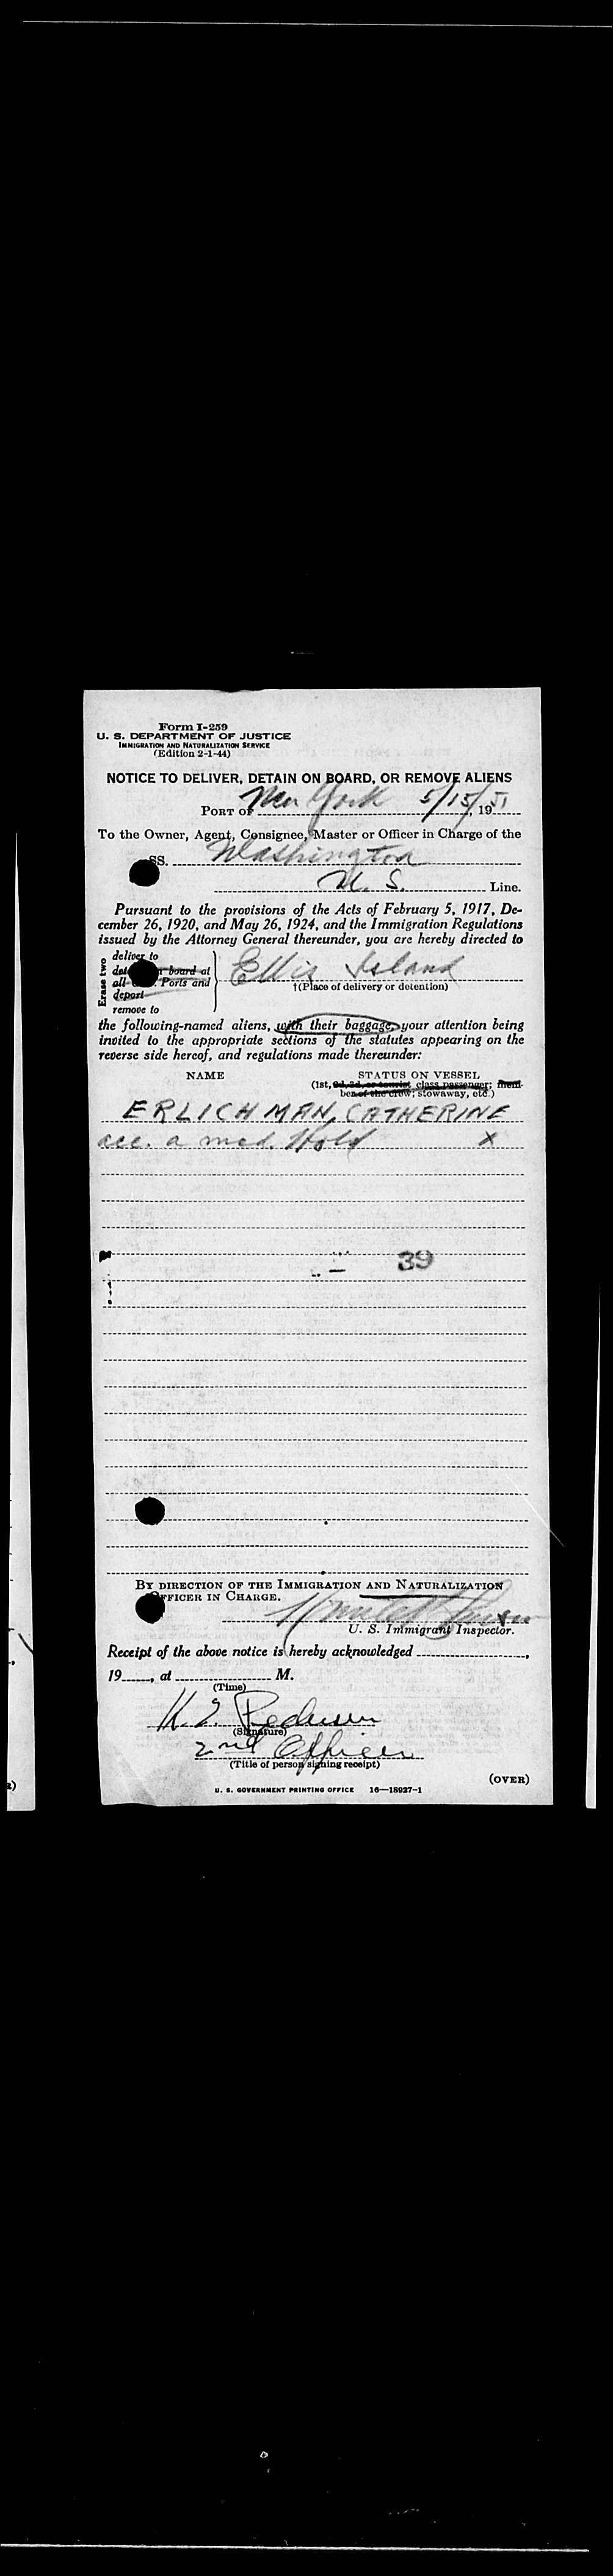 Form I-259
U. S. DEPARTMENT OF JUSTICE
IMMIGRATION AND NATURALIZATION SERVICE
(Edition 2-1-44)
NOTICE TO DELIVER, DETAIN ON BOARD, OR REMOVE ALIENS
PORT OF New York 5/15/, 1951
To the Owner, Agent, Consignee, Master or Officer in Charge of the
SS. Washington
U. S. Line.
Pursuant to the provisions of the Acts of February 5, 1917, De-
cember 26, 1920, and May 26, 1924, and the Immigration Regulations
issued by the Attorney General thereunder, you are hereby directed to
Erase two
deliver to
board at
all Ports and
deport
remove to
Ellis Island
†(Place of delivery or detention)
the following-named aliens, with their baggage, your attention being
invited to the appropriate sections of the statutes appearing on the
reverse side hereof, and regulations made thereunder:
NAME STATUS ON VESSEL
(1st, 2d, 3d, or tourist class passenger; mem-
ber of the crew; stowaway, etc.)
ERLICHMAN, CATHERINE
acc. a med. Hold X
39
BY DIRECTION OF THE IMMIGRATION AND NATURALIZATION
OFFICER IN CHARGE.
U. S. Immigrant Inspector.
Receipt of the above notice is hereby acknowledged ,
19 , at M.
(Time)
(Signature)
2nd Officer
(Title of person signing receipt)
(OVER)
U. S. GOVERNMENT PRINTING OFFICE 16—18927-1